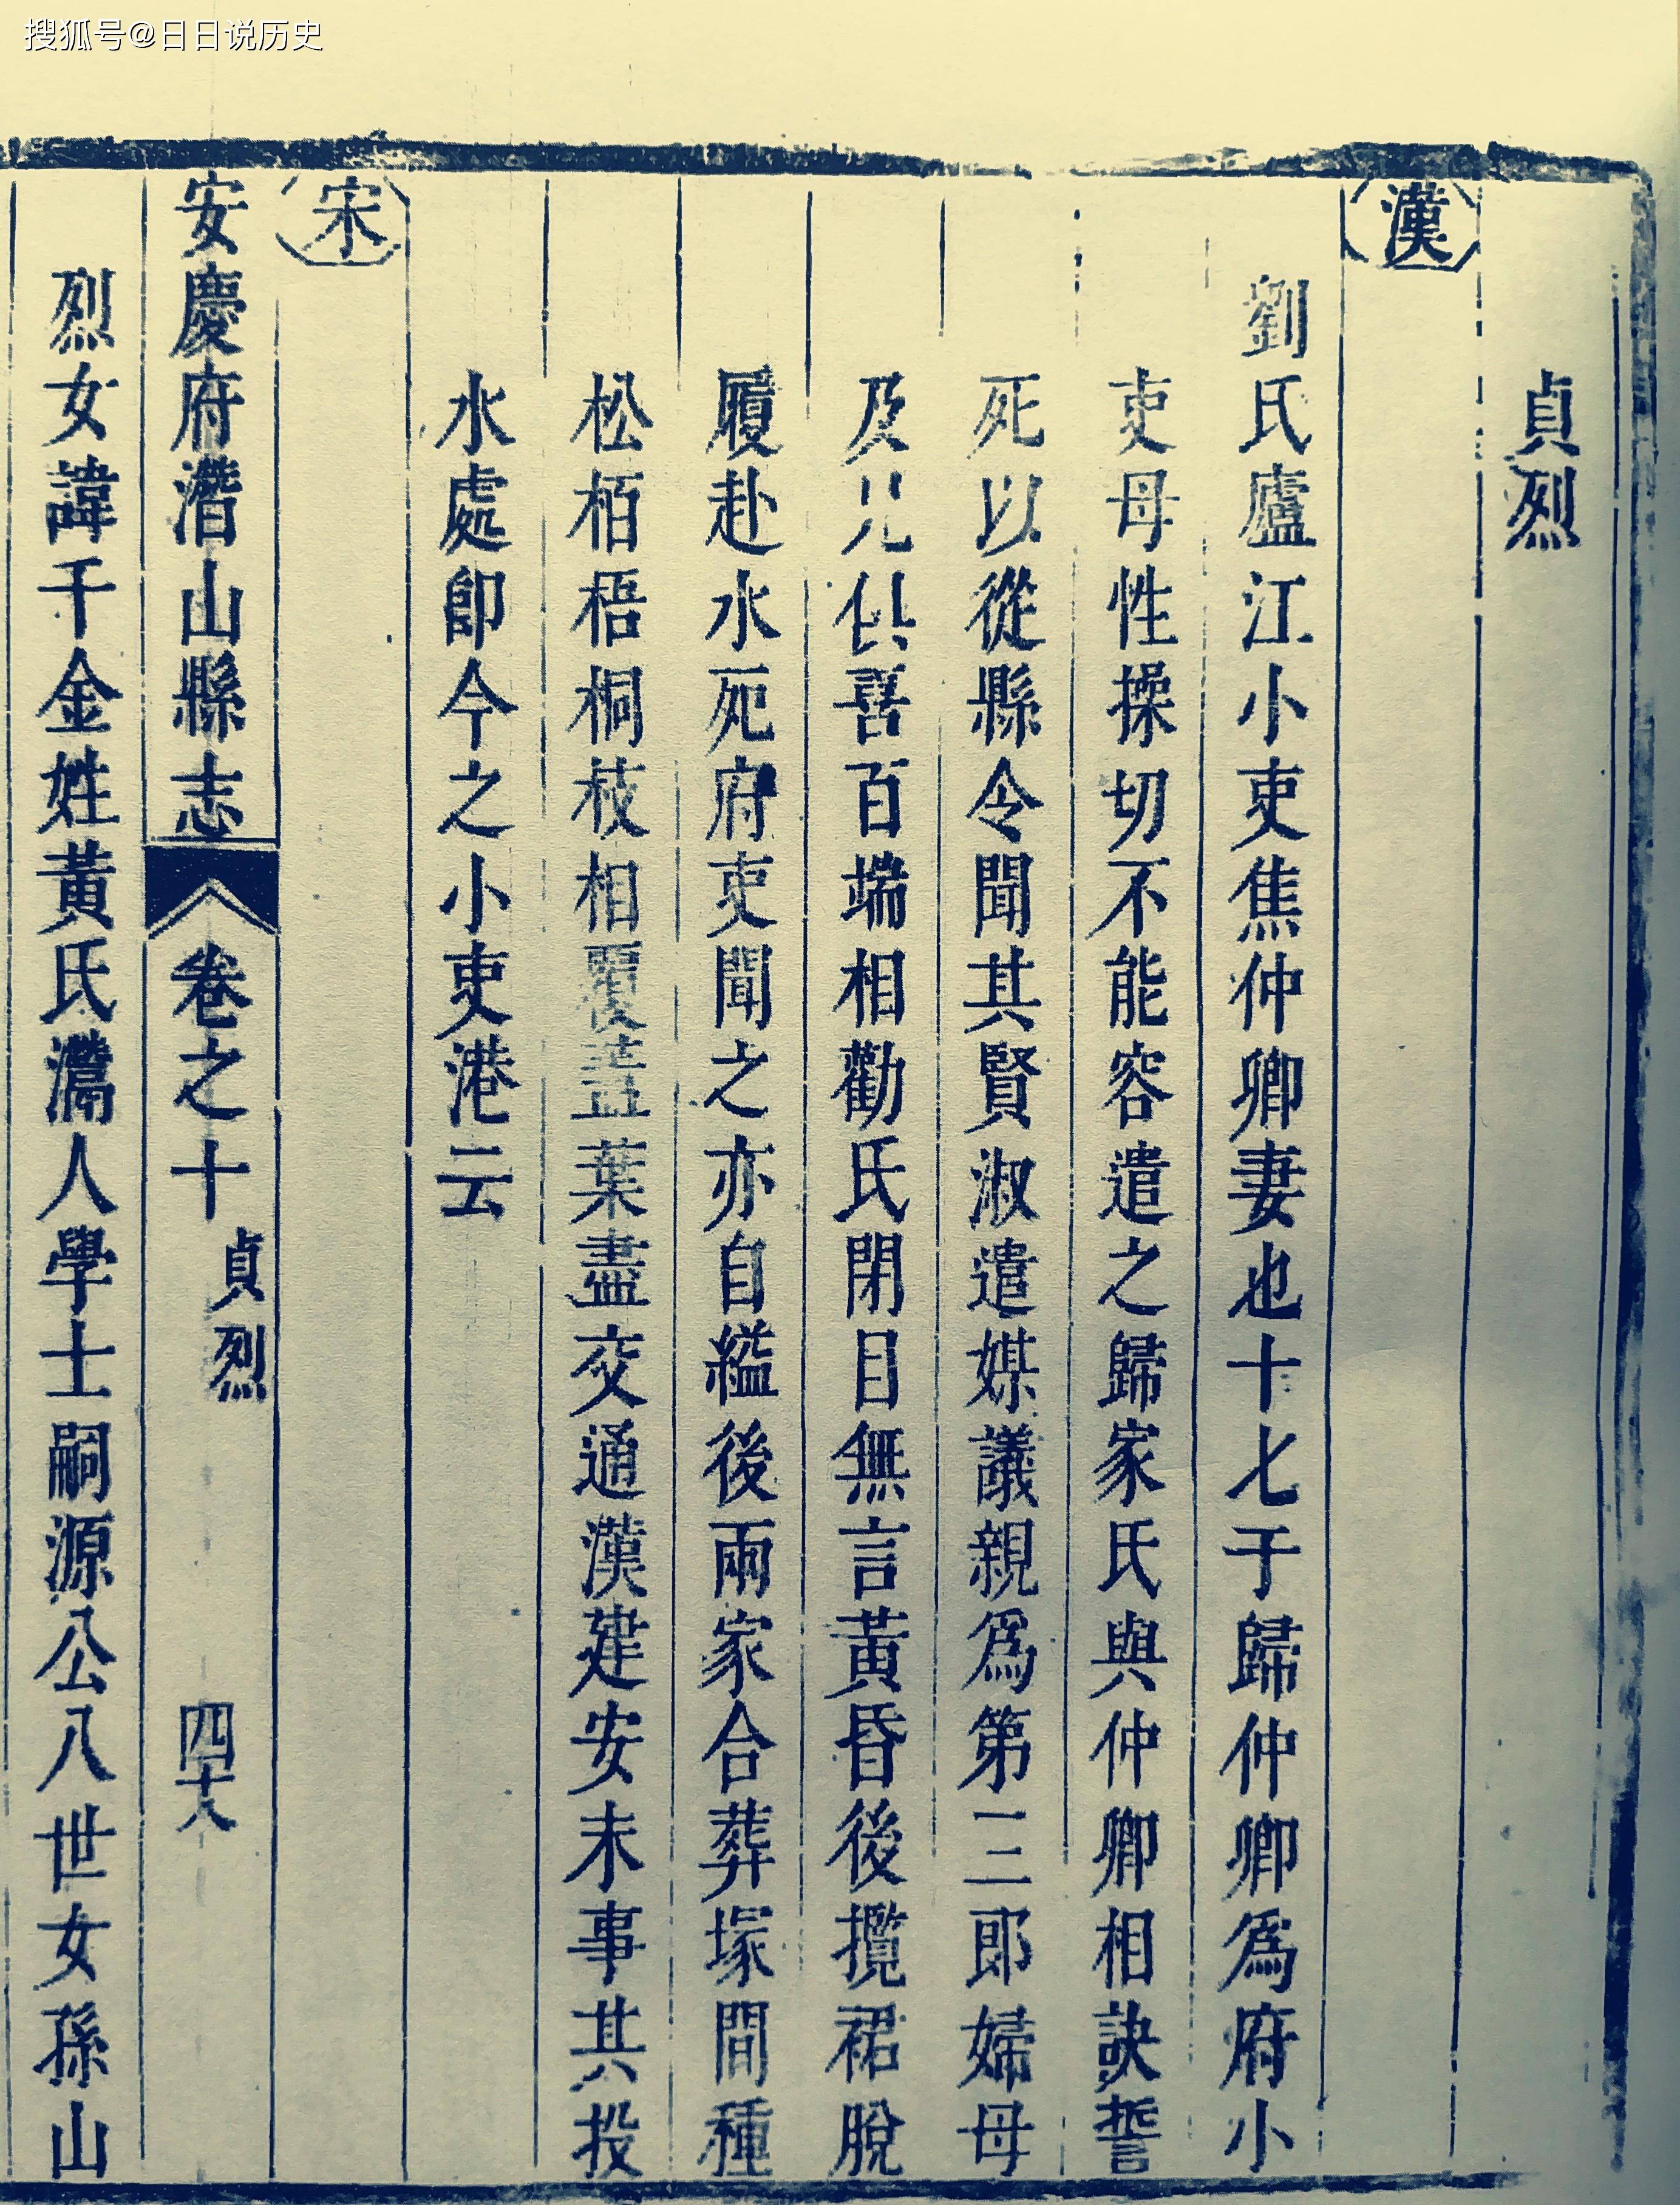 搜狐号@日日说历史
貞烈
漢
劉氏廬江小吏焦仲卿妻也十七于歸仲卿卿爲府小
吏母性操切不能容遣之歸家氏與仲卿相訣誓
死以從縣令聞其賢淑遣媒議親爲第三郎婦母
及兄供喜百端相勸氏閉目無言黃昏後攬裙脫
履赴水死府吏聞之亦自縊後兩家合葬塚間種
松栢梧桐枝相覆蓋葉盡交通漢建安末事其投
水處卽今之小吏港云
宋
安慶府潛山縣志 卷之十 貞烈 四十八
烈女諱千金姓黃氏灊人學士嗣源公八世女孫山